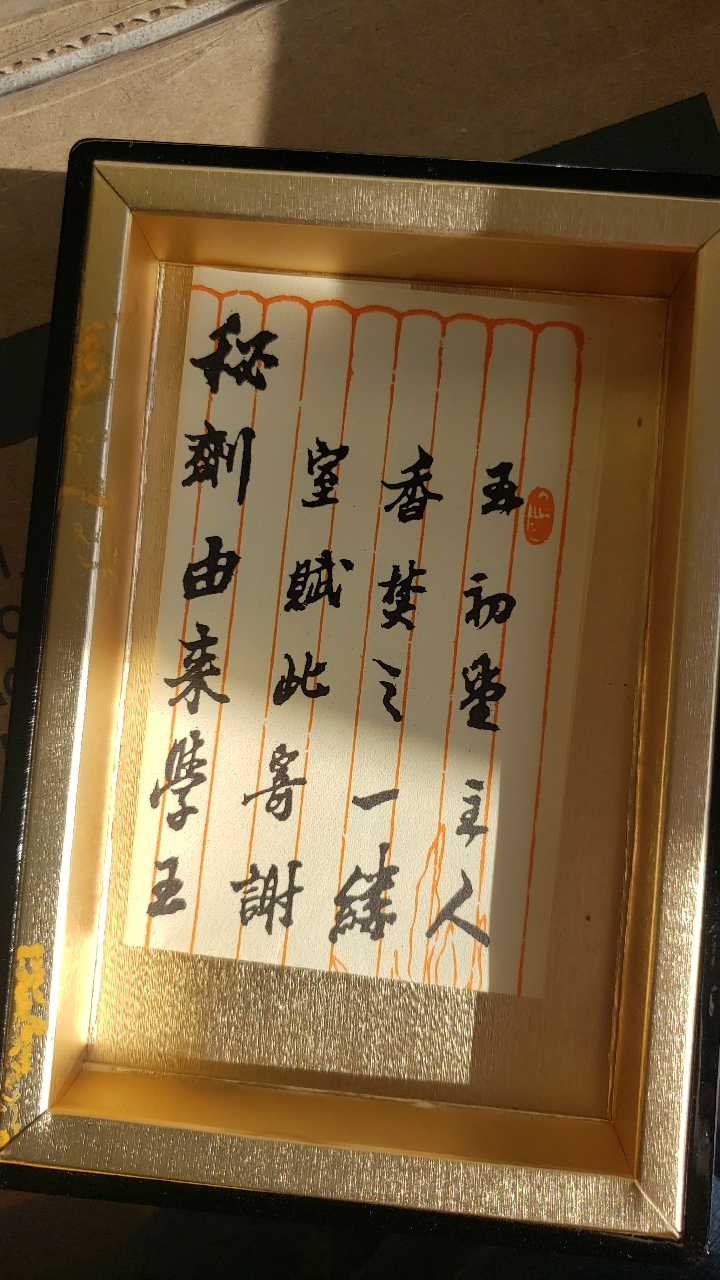 五初堂主人
香焚之一縷
室賦此寄謝
秘劑由来學王